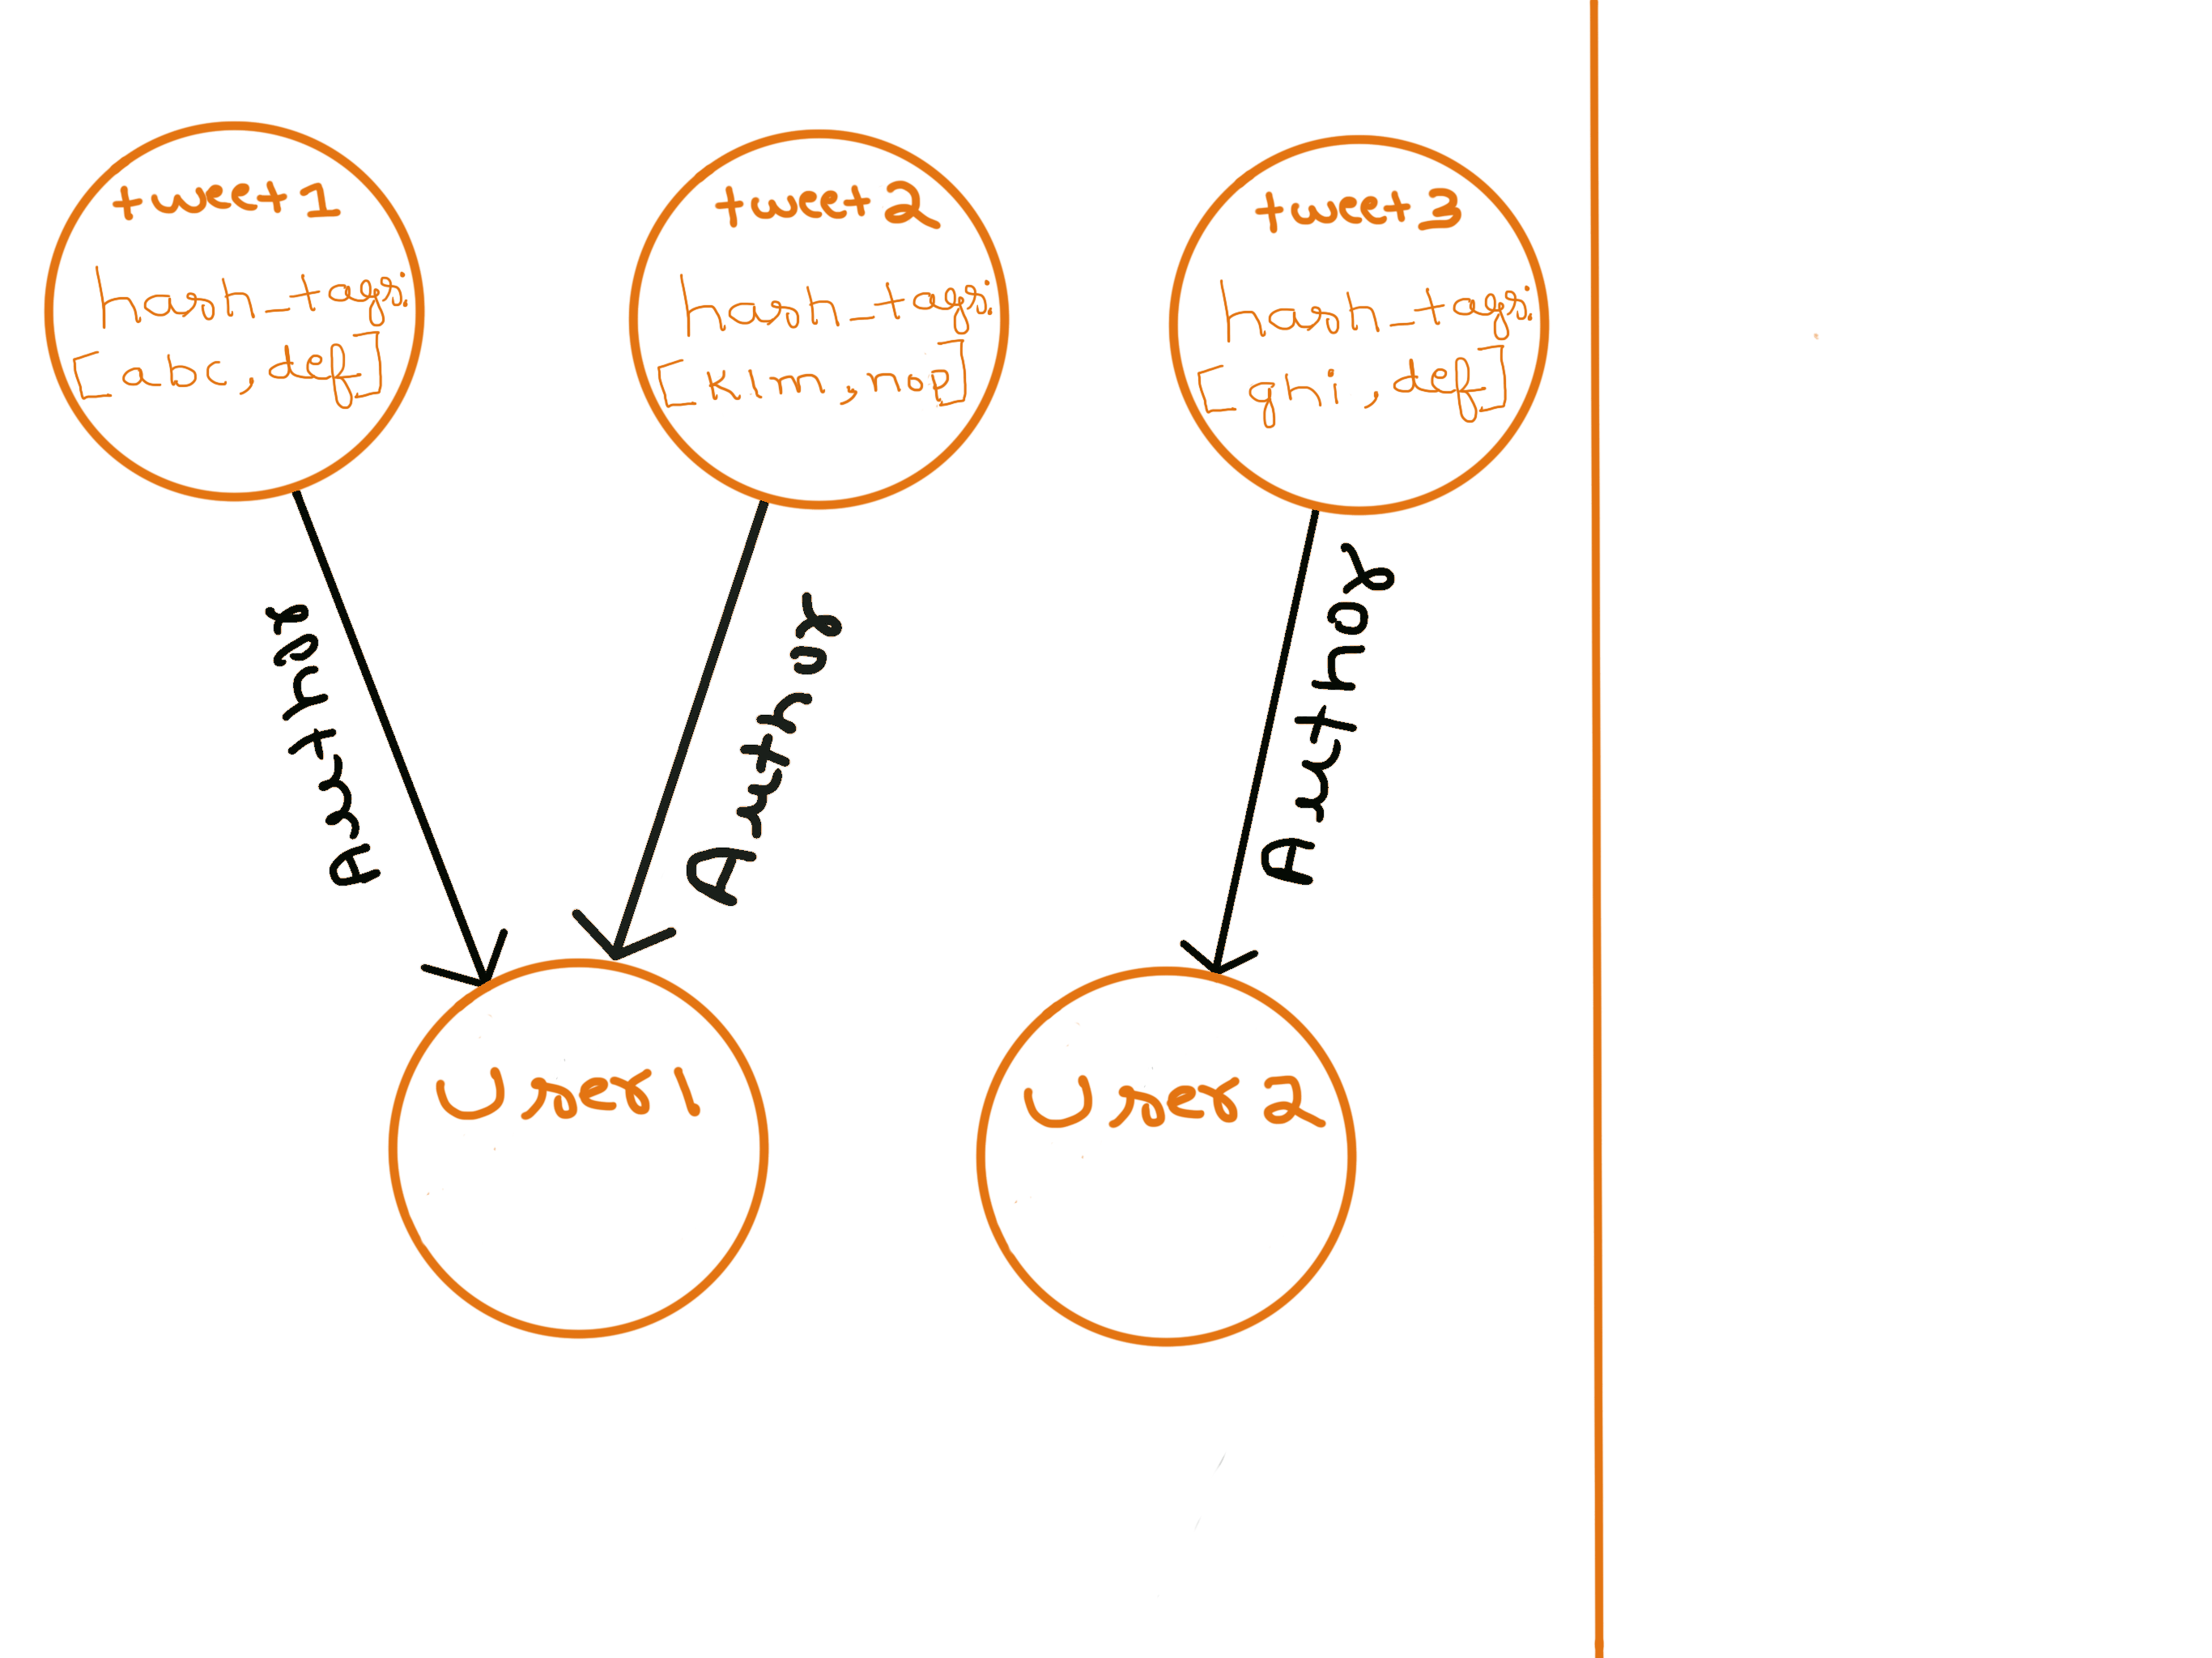 tweet 1
hash_tags:
[abc, def]
tweet 2
hash_tags:
[klm, nop]
tweet 3
hash_tags:
[ghi, def]
Author
Author
Author
User 1
User 2